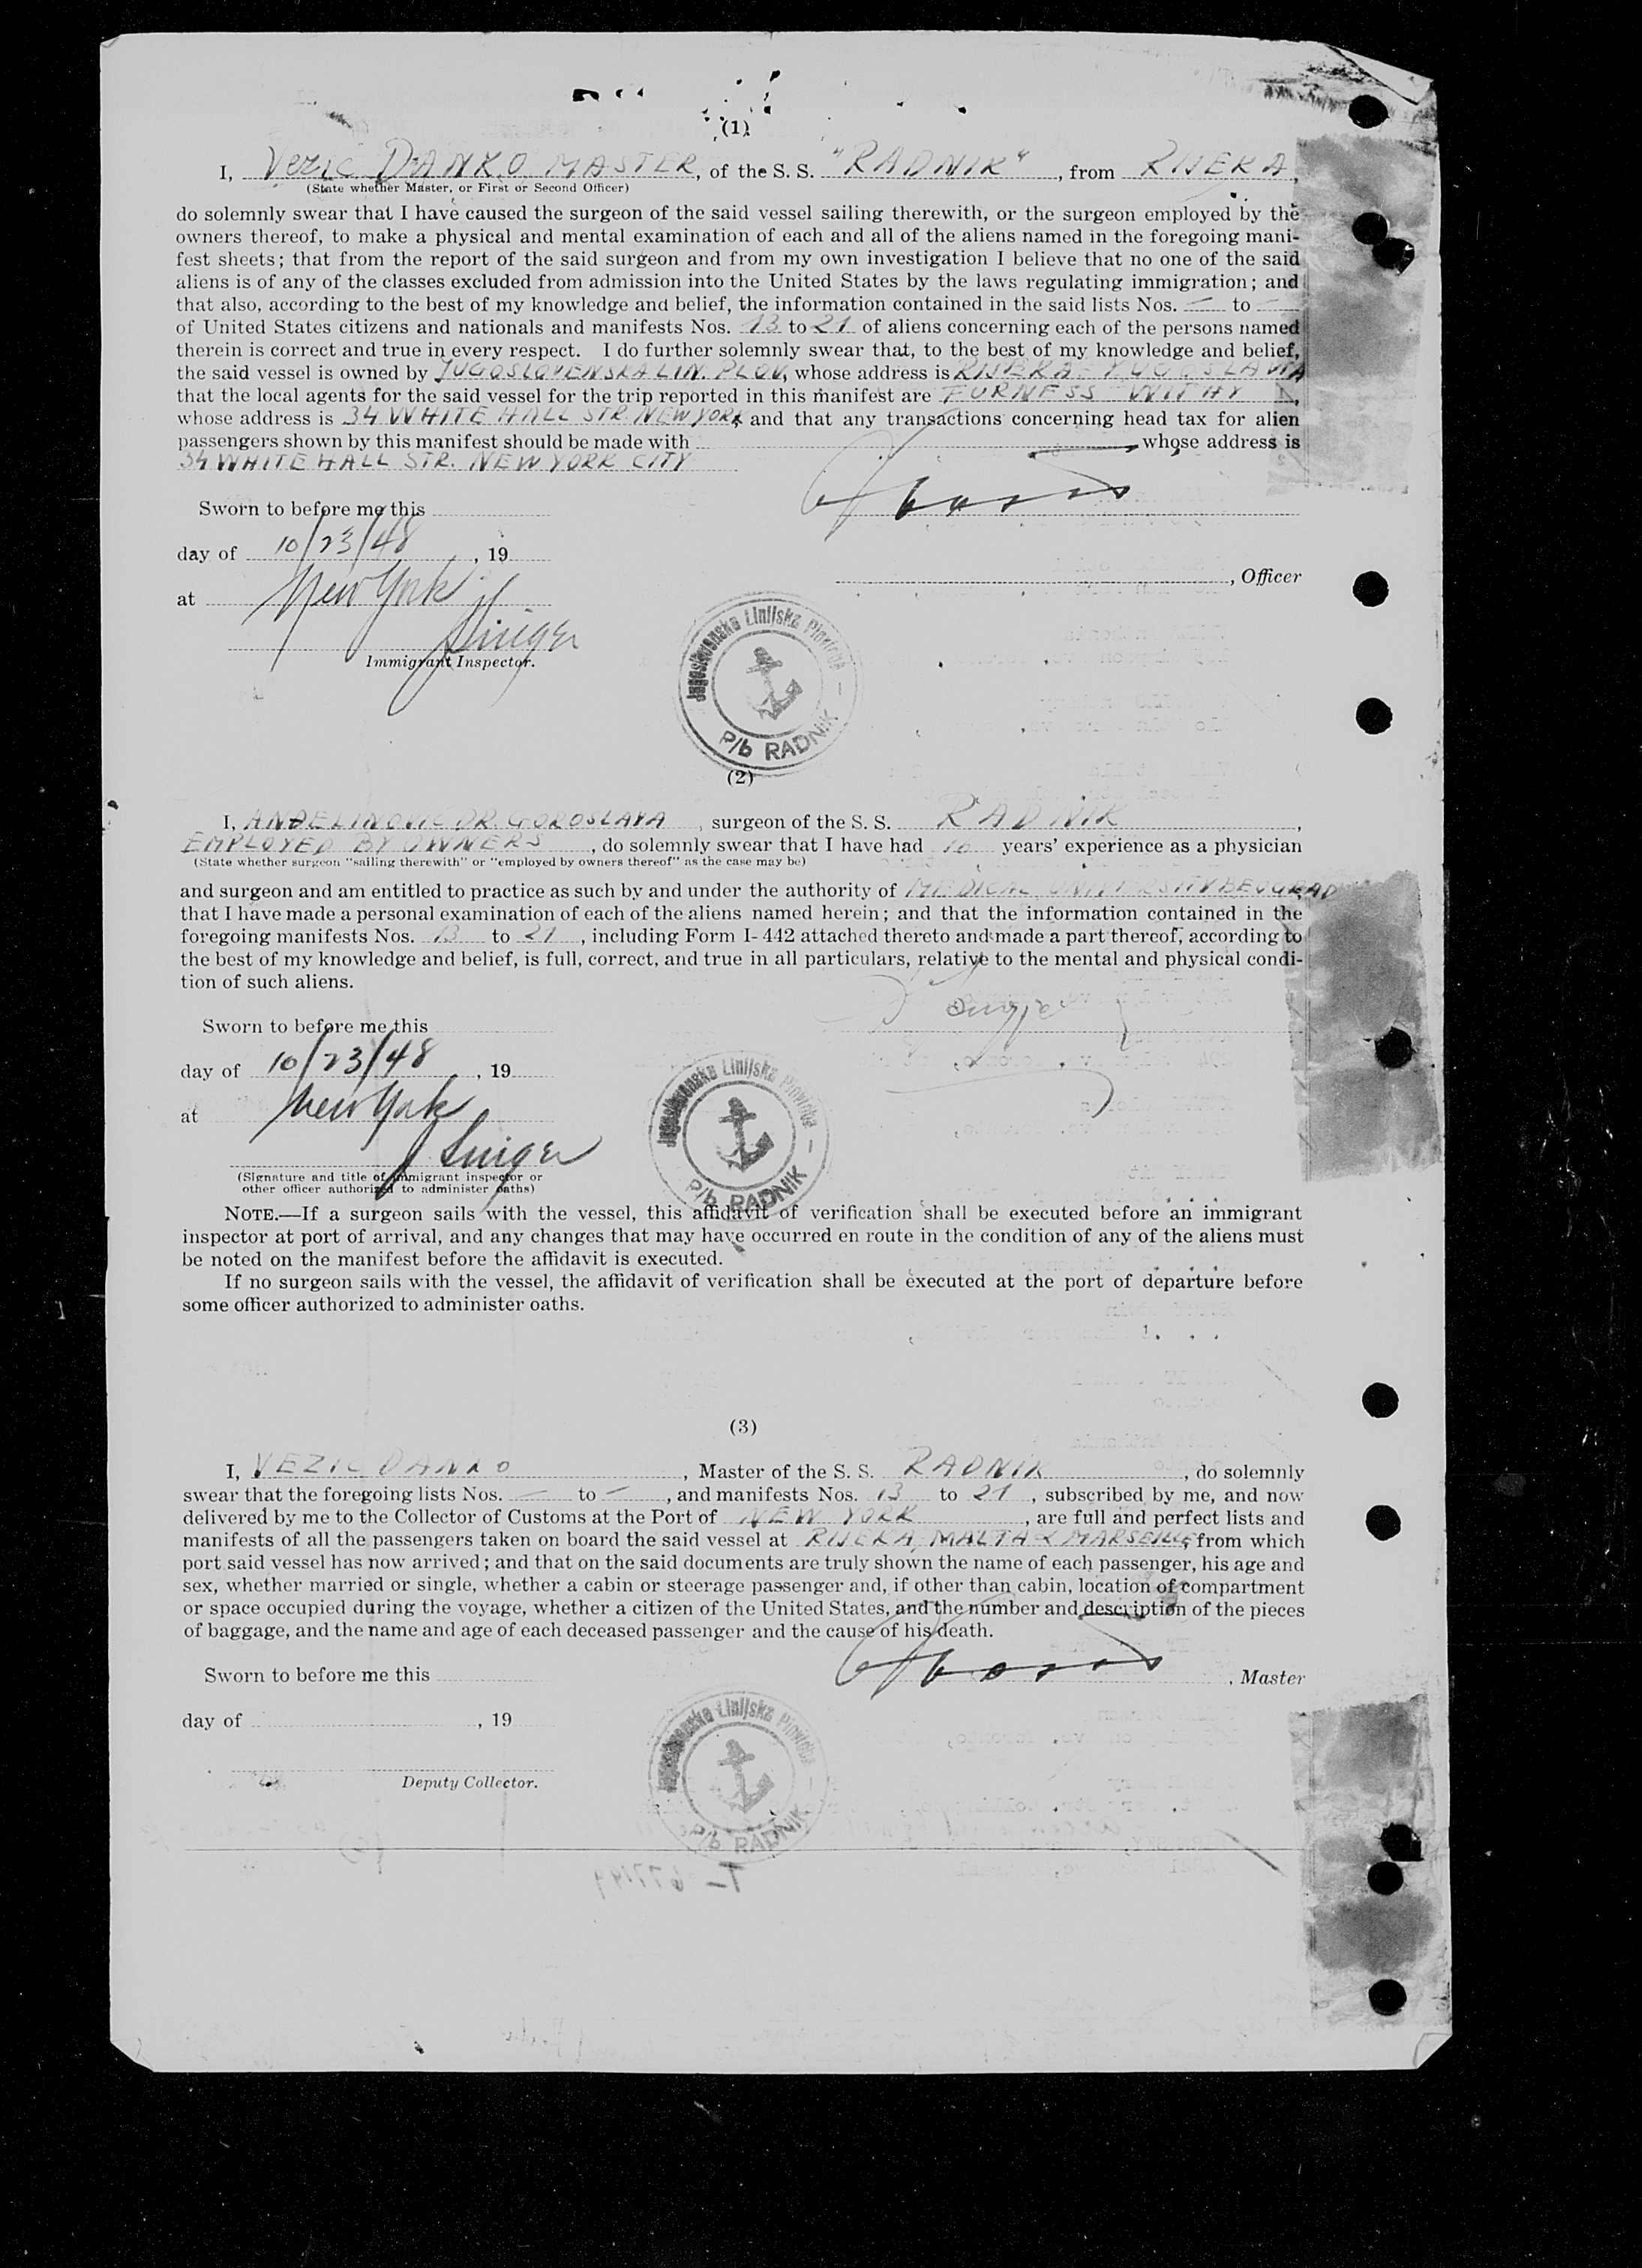 (1)
I, Vezic DANKO MASTER, of the S. S. "RADNIK", from RIJEKA,
(State whether Master, or First or Second Officer)
do solemnly swear that I have caused the surgeon of the said vessel sailing therewith, or the surgeon employed by the
owners thereof, to make a physical and mental examination of each and all of the aliens named in the foregoing mani-
fest sheets; that from the report of the said surgeon and from my own investigation I believe that no one of the said
aliens is of any of the classes excluded from admission into the United States by the laws regulating immigration; and
that also, according to the best of my knowledge and belief, the information contained in the said lists Nos. — to —
of United States citizens and nationals and manifests Nos. 13 to 21 of aliens concerning each of the persons named
therein is correct and true in every respect. I do further solemnly swear that, to the best of my knowledge and belief,
the said vessel is owned by JUGOSLOVENSKA LIN. PLOV, whose address is RIJEKA - YUGOSLAVIA
that the local agents for the said vessel for the trip reported in this manifest are FURNESS WITHY
whose address is 34 WHITE HALL STR. NEW YORK, and that any transactions concerning head tax for alien
passengers shown by this manifest should be made with whose address is
34 WHITE HALL STR. NEW YORK CITY
Sworn to before me this
day of 10/23/48, 19
, Officer
at New York
Singer
Immigrant Inspector.
Jugoslovenska Linijska Plovidba –
P/b RADNIK
(2)
I, ANĐELINOVIC DR. GOROSLAVA, surgeon of the S. S. RADNIK,
EMPLOYED BY OWNERS, do solemnly swear that I have had 16 years' experience as a physician
(State whether surgeon "sailing therewith" or "employed by owners thereof" as the case may be)
and surgeon and am entitled to practice as such by and under the authority of MEDICAL UNIVERSITY BEOGRAD
that I have made a personal examination of each of the aliens named herein; and that the information contained in the
foregoing manifests Nos. 13 to 21, including Form I-442 attached thereto and made a part thereof, according to
the best of my knowledge and belief, is full, correct, and true in all particulars, relative to the mental and physical condi-
tion of such aliens.
Sworn to before me this
day of 10/23/48, 19
at New York
Singer
(Signature and title of immigrant inspector or
other officer authorized to administer oaths)
Jugoslovenska Linijska Plovidba –
P/b RADNIK
NOTE.—If a surgeon sails with the vessel, this affidavit of verification shall be executed before an immigrant
inspector at port of arrival, and any changes that may have occurred en route in the condition of any of the aliens must
be noted on the manifest before the affidavit is executed.
If no surgeon sails with the vessel, the affidavit of verification shall be executed at the port of departure before
some officer authorized to administer oaths.
(3)
I, VEZIC DANKO, Master of the S. S. RADNIK, do solemnly
swear that the foregoing lists Nos. — to —, and manifests Nos. 13 to 21, subscribed by me, and now
delivered by me to the Collector of Customs at the Port of NEW YORK, are full and perfect lists and
manifests of all the passengers taken on board the said vessel at RIJEKA, MALTA & MARSEILLE, from which
port said vessel has now arrived; and that on the said documents are truly shown the name of each passenger, his age and
sex, whether married or single, whether a cabin or steerage passenger and, if other than cabin, location of compartment
or space occupied during the voyage, whether a citizen of the United States, and the number and description of the pieces
of baggage, and the name and age of each deceased passenger and the cause of his death.
Sworn to before me this
, Master
day of , 19
Deputy Collector.
Jugoslovenska Linijska Plovidba –
P/b RADNIK